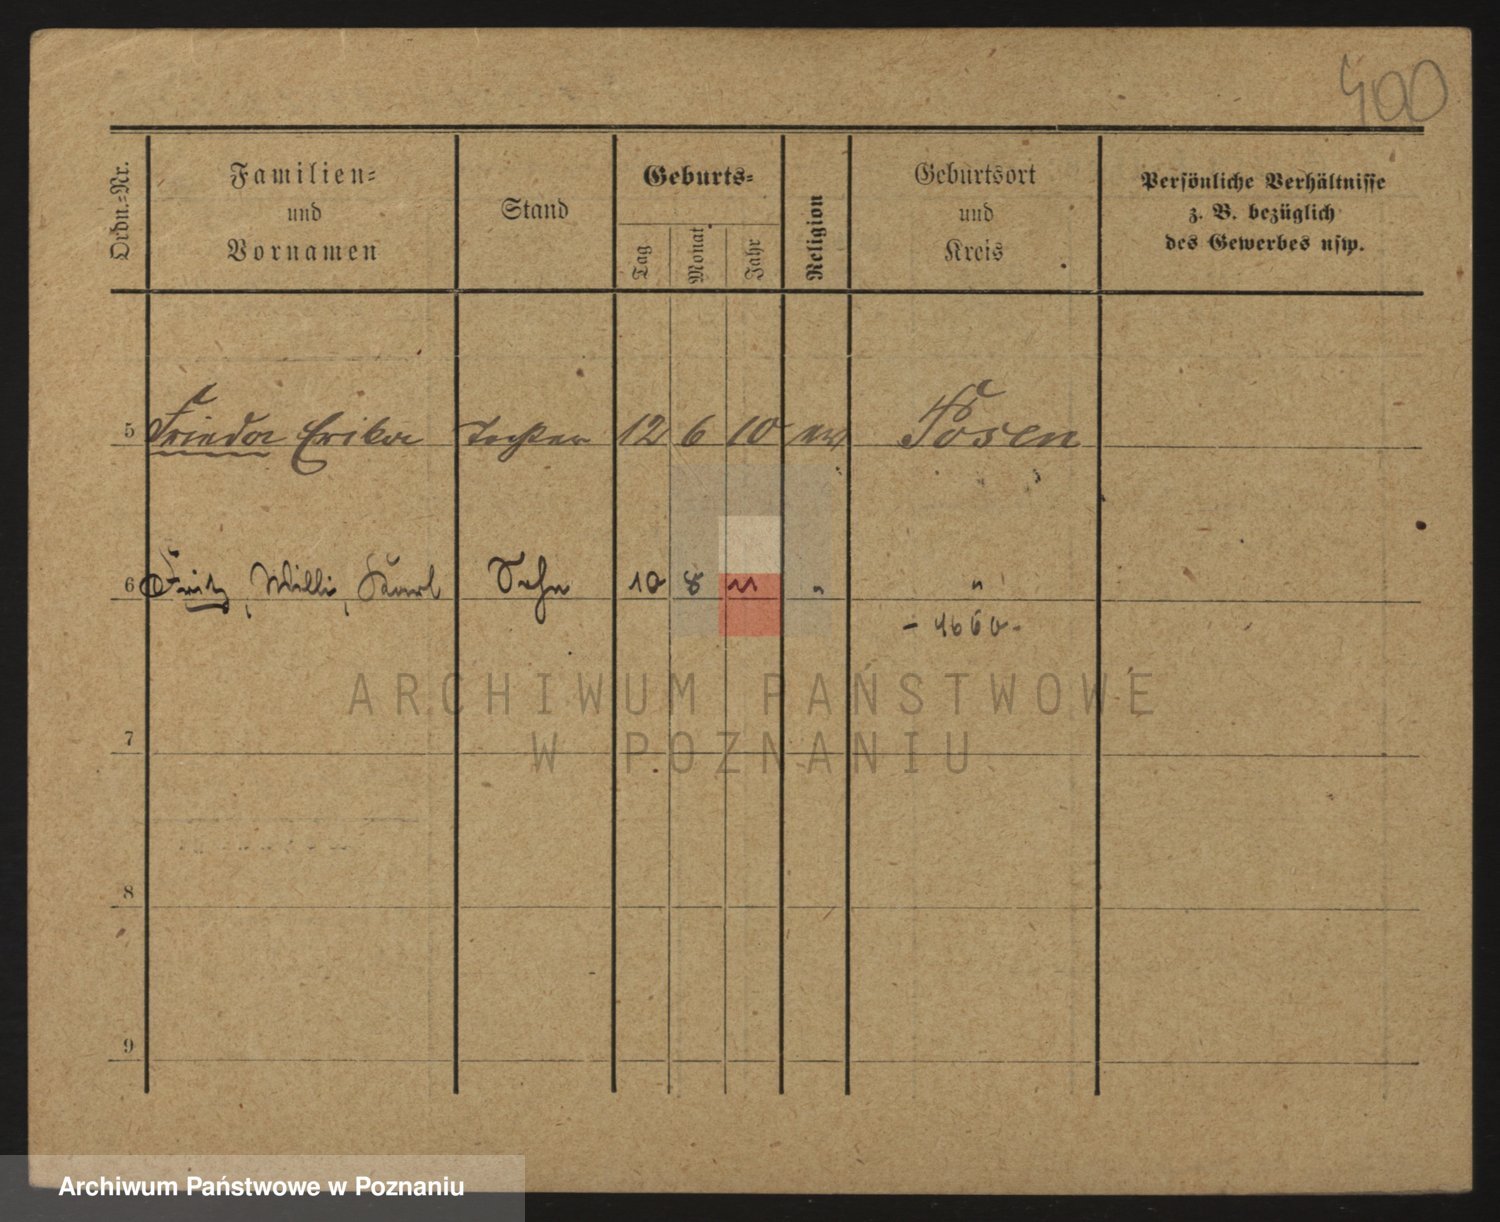 400
Ordn.-Nr.
Familien-
und
Vornamen
Stand
Geburts-
Tag
Monat
Jahr
Religion
Geburtsort
und
Kreis
Persönliche Verhältnisse
z. B. bezüglich
des Gewerbes usw.
5 Frieda Erika Tochter 12 6 10 ev Posen
6 Fritz, Willi, Karl Sohn 10 8 11 " "
7
8
9
ARCHIWUM PAŃSTWOWE
W POZNANIU
Archiwum Państwowe w Poznaniu